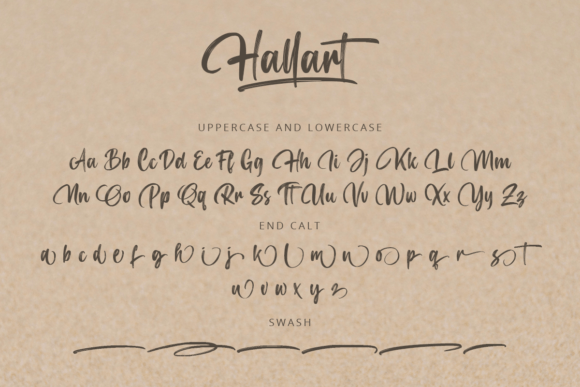 Hallart
UPPERCASE AND LOWERCASE
Aa Bb Cc Dd Ee Ff Gg Hh Ii Jj Kk Ll Mm
Nn Oo Pp Qq Rr Ss Tt Uu Vv Ww Xx Yy Zz
END CALT
a b c d e f g h i j k l m n o p q r s t
u v w x y z
SWASH